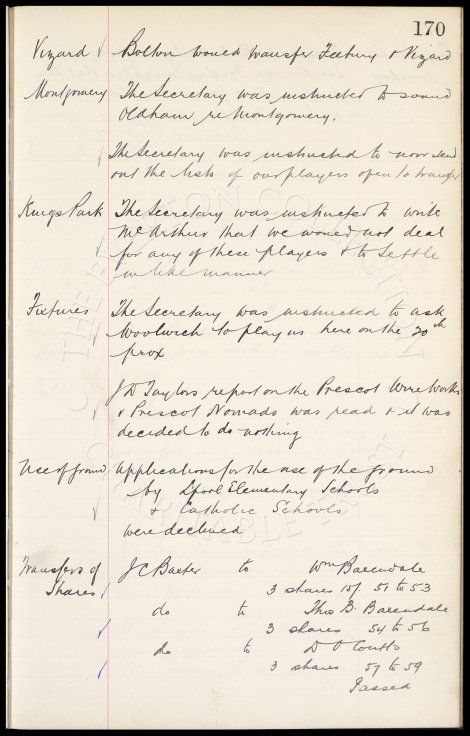 170
Vizzard Bolton would transfer Feebury & Vizard
Montgomery The Secretary was instructed to sound
Oldham re Montgomery.
The Secretary was instructed to now send
out the lists of our players open to transfer
Kings Park The Secretary was instructed to write
McArthur that we would not deal
for any of these players & to settle
in like manner
Fixtures The Secretary was instructed to ask
Woolwich to play us here on the 20th
prox
J D Taylors report on the Prescot Wire Works
& Prescot Nomads was read & it was
decided to do nothing
Use of ground applications for the use of the ground
by L'pool Elementary Schools
& Catholic Schools
were declined
Transfers of J C Baxter to Wm Baxendale
Shares 3 shares 51 to 53
do to Thos G. Baxendale
3 shares 54 to 56
do to D O Coutts
3 shares 57 to 59
Passed